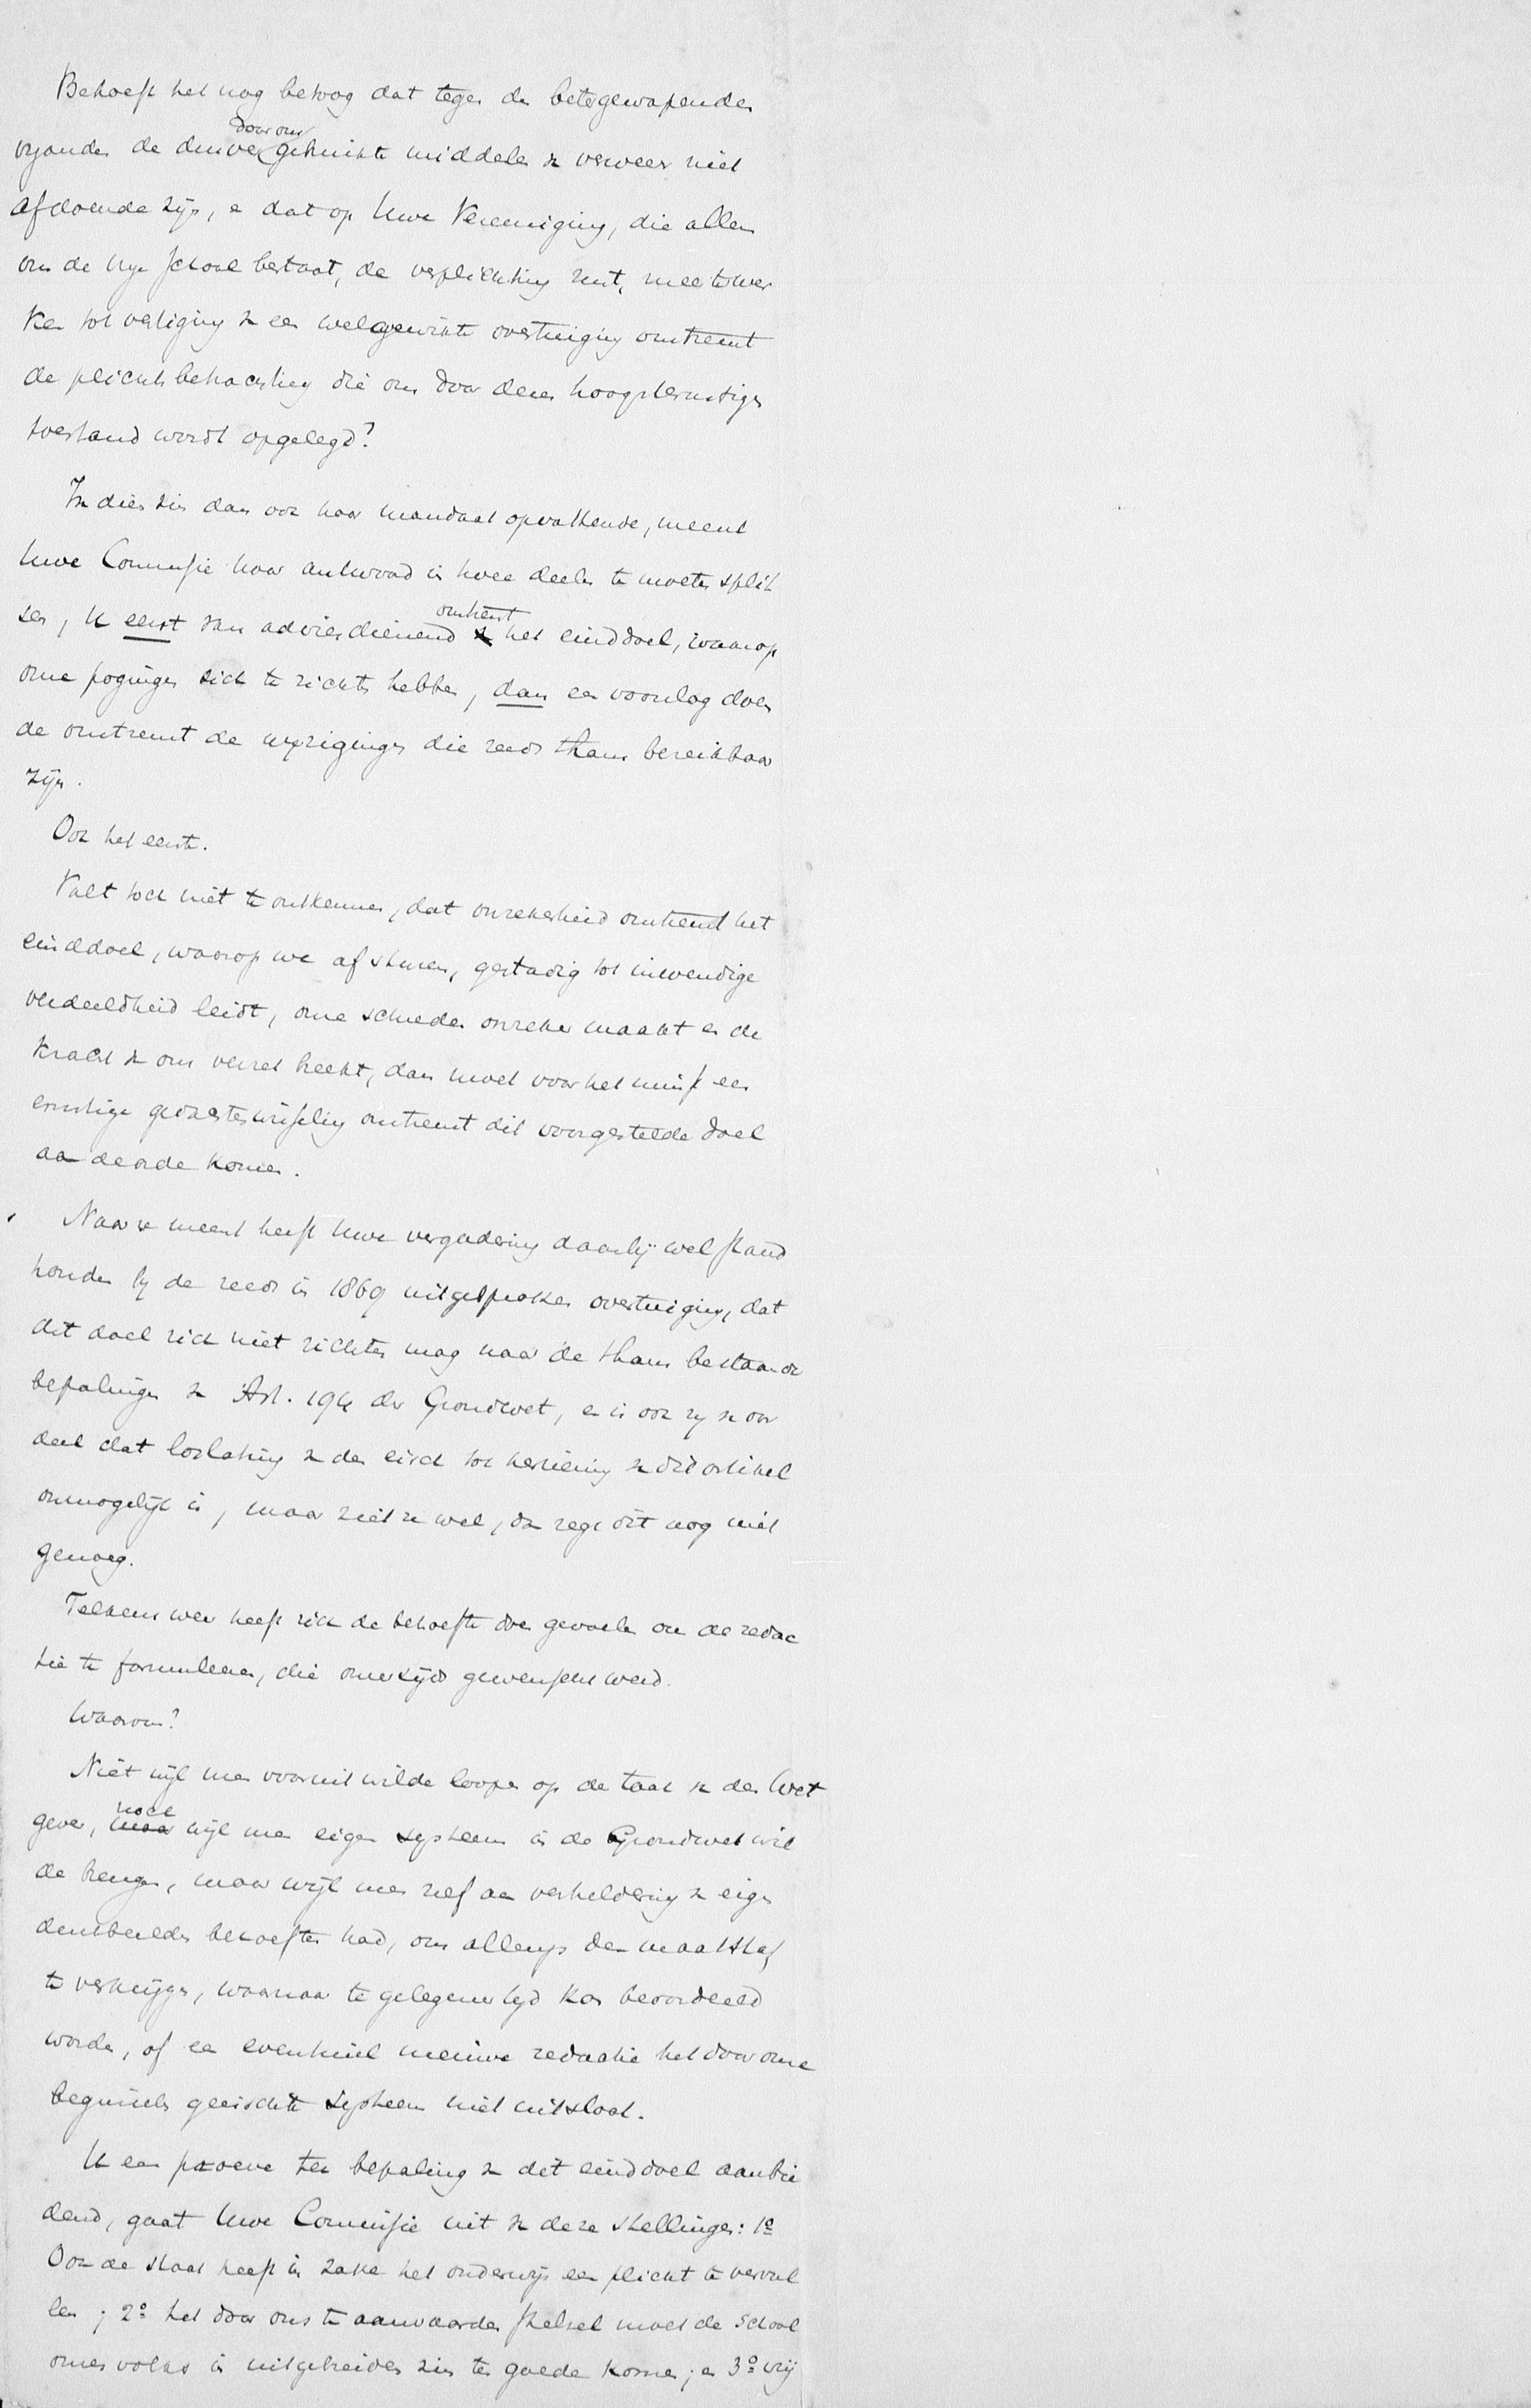 Behoeft het nog betoog dat tegen den betergewapenden
door ons
vyanden de dusver gebruikte middelen v verweer niet
afdoende zyn, e dat op Uwe Vereeniging, die alleen
om de Vrye School bestaat, de verplichting rust, meetewer
ken tot vestiging v een welgewikte overtuiging omtrent
de plichtsbetrachting die ons door dezen hoogsternstigen
toestand wordt opgelegd?
In dien zin dan ook haar mandaat opvattende, meent
Uwe Commissie haar antwoord in twee deelen te moeten split
omtrent
sen, u eerst van advies dienend v het einddoel, waarop
onze pogingen zich te richten hebben, dan een voorslag doen
de omtrent de wyzigingen die reeds thans bereikbaar
zyn.
Ook het eerste.
Valt toch niet te ontkennen, dat onzekerheid omtrent het
einddoel, waarop we afsturen, gestadig tot inwendige
verdeeldheid leidt, onze schreden onzeker maakt en de
kracht v ons verzet breekt, dan moet voor het minst een
ernstige gedachtenwisseling omtrent dit voorgestelde doel
aan de orde komen.
Naar ze meent heeft Uwe vergadering daarby wel stand
houden by de reeds in 1869 uitgesproken overtuiging, dat
dit doel zich niet richten mag naar de thans bestaande
bepalingen v Art. 194 der Grondwet, en is ook zy v oor
deel dat loslating v den eisch tot herziening v dit artikel
onmogelyk is, maar ziet ze wel, dan zegt dit nog niet
genoeg.
Telkens weer heeft zich de behoefte doen gevoelen om de redac
tie te formuleeren, die onzerzyds gewenscht werd.
Waarom?
Niet wyl men vooruit wilde loopen op de taak v den Wet
noch
gever, maar wyl men eigen systeem in de Grondwet wil
de brengen, maar wyl men zelf aan verheldering v eigen
denkbeelden behoefte had, om allengs den maatstaf
te verkrygen, waarnaar te gelegener tyd kon beoordeeld
worden, of een eventueel nieuwe redactie het door onze
beginselen geeischte systeem niet uitsloot.
U een proeve ter bepaling v dit einddoel aanbie
dend, gaat Uwe Commissie uit v deze stellingen: 1o
Ook de staat heeft in zake het onderwys een plicht te vervul
len; 2o het door ons te aanvaarden stelsel moet de School
onzes volks in uitgebreiden zin ten goede komen; en 3o vry